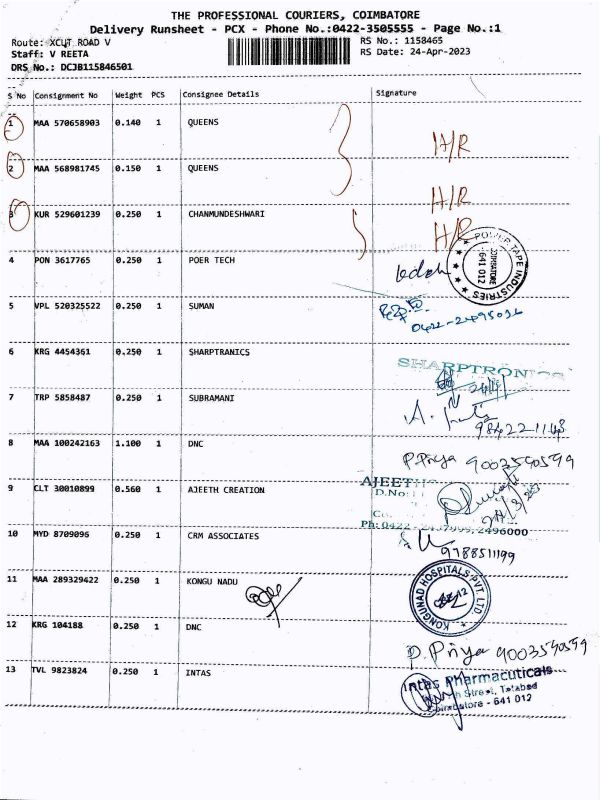 THE PROFESSIONAL COURIERS, COIMBATORE
Delivery Runsheet - PCX - Phone No.:0422-3505555 - Page No.:1
Route: XCUT ROAD V
RS No.: 1158465
Staff: V REETA
RS Date: 24-Apr-2023
DRS No.: DCJB115846501
S No Consignment No Weight PCS Consignee Details Signature
1 MAA 570658903 0.140 1 QUEENS H/R
2 MAA 568981745 0.150 1 QUEENS H/R
3 KUR 529601239 0.250 1 CHANMUNDESHWARI H/R
4 PON 3617765 0.250 1 POER TECH
POWER TAPE INDUSTRIES
COIMBATORE
641 012
5 VPL 520325522 0.250 1 SUMAN
6 KRG 4454361 0.250 1 SHARPTRANICS
SHARPTRONICS
7 TRP 5858487 0.250 1 SUBRAMANI
8 MAA 100242163 1.100 1 DNC P. Priya 9003540599
9 CLT 30010899 0.560 1 AJEETH CREATION
AJEETH
D.No:
Ph: 0422 - 2496000
10 MYD 8709096 0.250 1 CRM ASSOCIATES
9788511199
11 MAA 289329422 0.250 1 KONGU NADU
KONGUNAD HOSPITALS PVT. LTD
12 KRG 104188 0.250 1 DNC P. Priya 9003540599
13 TVL 9823824 0.250 1 INTAS
Intas Pharmacuticals
Street, Tatabad
Coimbatore - 641 012